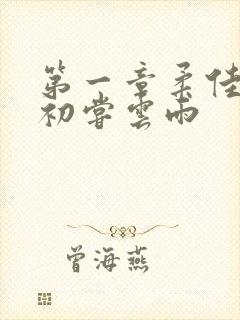 第一章柔佳
初尝雲雨
曾海燕